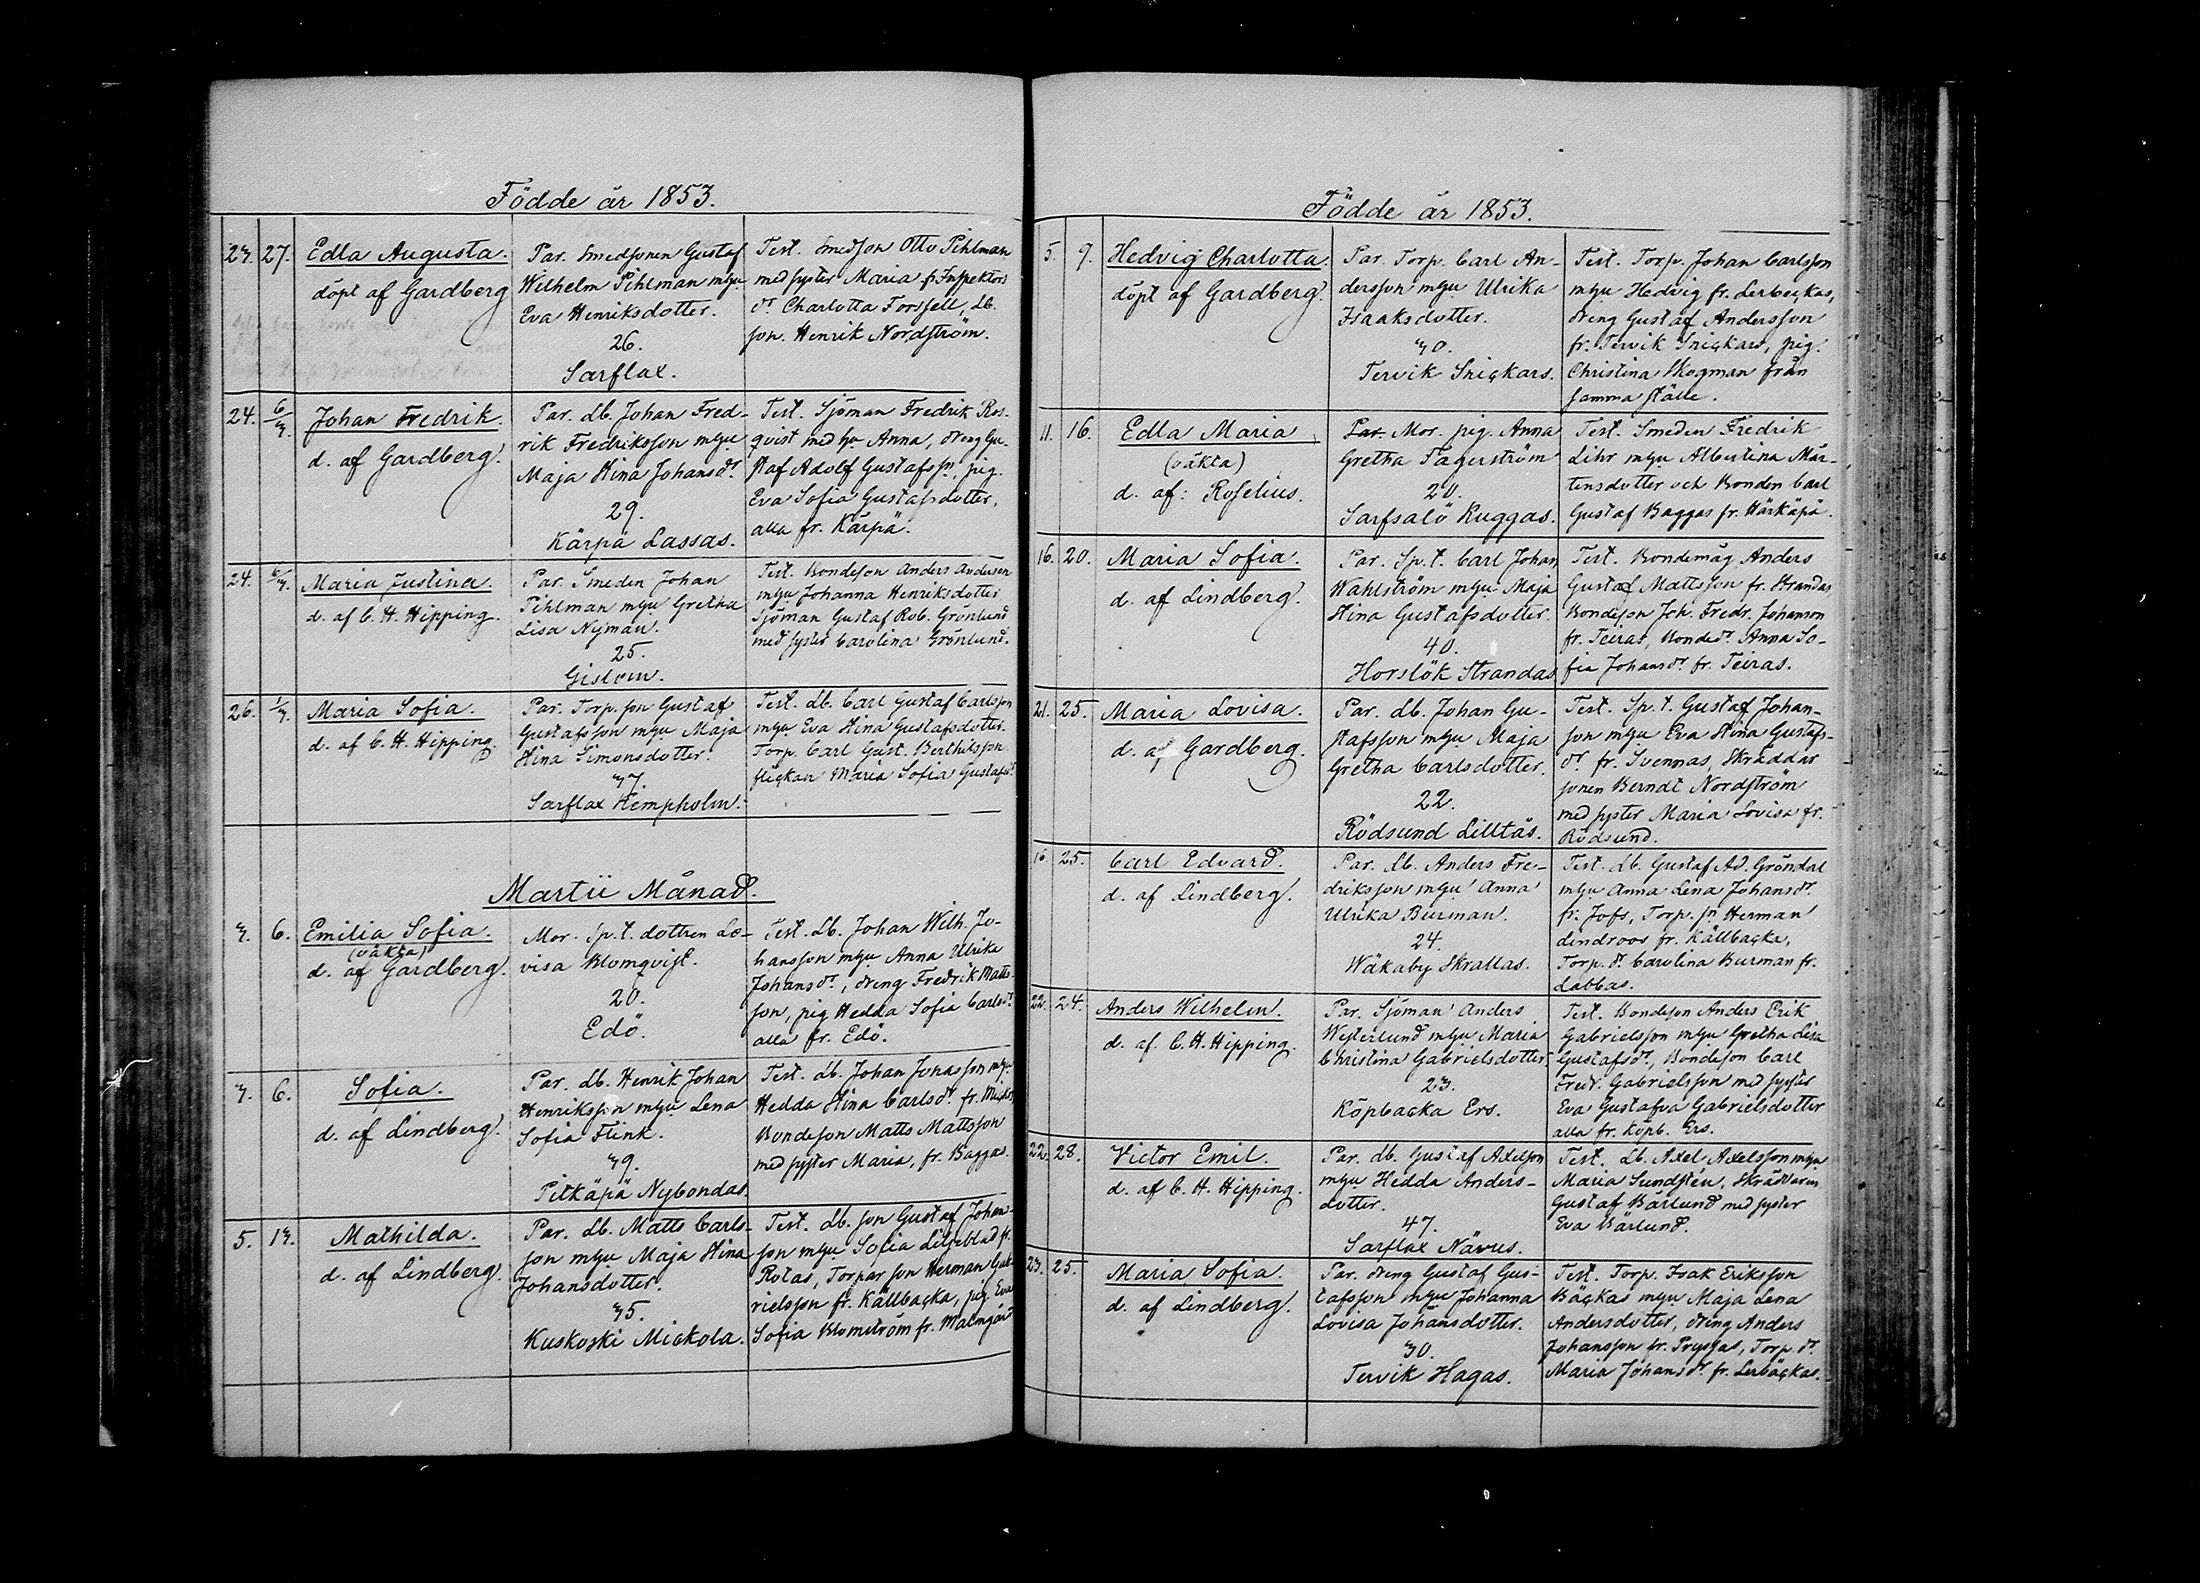 Födde år 1853.
23. 27. Edla Augusta.
döpt af Gardberg
Par. Smedsonen Gustaf
Wilhelm Pihlman m hu
Eva Henriksdotter.
26.
Sarflax.
Test. Smedson Otto Pihlman
med syster Maria, fr Inspektors
dr Charlotta Forssell, Lb.
son. Henrik Nordström.
24. 6/3. Johan Fredrik.
d. af Gardberg.
Par. Lb. Johan Fred-
rik Fredriksson m hu
Maja Stina Johansdr
29.
Kärpä Lassas.
Test. Sjöman Fredrik Ros-
qvist med hu Anna, dreng Gu-
staf Adolf Gustafssn, pig.
Eva Sofia Gustafsdotter,
alla fr. Kärpä.
24. 6/3. Maria Justina.
d. af C. H. Hipping.
Par. Smeden Johan
Pihlman m hu Gretha
Lisa Nyman.
25.
Gislom.
Test. Bondeson Anders Andersen
m hu Johanna Henriksdotter
Sjöman Gustaf Rob. Grönlund
med syster Carolina Grönlund.
26. 1/3. Maria Sofia.
d. af C. H. Hipping.
Par. Torp. son Gustaf
Gustafsson m hu Maja
Stina Simonsdotter.
37.
Sarflax Hempholm.
Test. Lb. Carl Gustaf Carlsson
m hu Eva Stina Gustafsdotter.
Torp. Carl Gust. Berthilsson
flickan Maria Sofia Gustafsdr
Martii Månad.
3. 6. Emilia Sofia.
(oäkta)
d. af Gardberg.
Mor. Sp. t. dottren Lo-
visa Blomqvist.
20.
Edö.
Test. Lb. Johan Wilh. Jo-
hansson m hu Anna Ulrika
Johansdr, dreng Fredrik Matts-
son, pig Hedda Sofia Carlsdr
alla fr. Edö.
3. 6. Sofia.
d. af Lindberg.
Par. Lb. Henrik Johan
Henriksson m hu Lena
Sofia Flink.
39.
Pitkäpä Nybondas.
Test. Lb. Johan Jonasson m hu
Hedda Stina Carlsdr fr.
Bondeson Matts Mattsson
med syster Maria, fr. Baggas.
5. 13. Mathilda.
d. af Lindberg.
Par. Lb. Matts Carls-
son m hu Maja Stina
Johansdotter.
35.
Kuskoski Mickola.
Test. Lb. son Gustaf Johan-
son m hu Sofia Liljeblad fr.
Rotas, Torpar son Herman Gab-
rielsson fr. Källbacka, pig. Eva
Sofia Blomström fr. Malmgård
Födde år 1853.
5. 9. Hedvig Charlotta.
döpt af Gardberg.
Par. Torp. Carl An-
dersson m hu Ulrika
Isaaksdotter.
30.
Tervik Snickars.
Test. Torp. Johan Carlsson
m hu Hedvig fr. Lerbeckas,
dreng Gustaf Andersson
fr. Tervik Snickars, pig.
Christina Skogman från
samma ställe.
11. 16. Edla Maria
(oäkta)
d. af: Roselius.
Par. Mor. pig. Anna
Gretha Fagerström
20.
Sarfsalö Ruggas.
Test. Smeden Fredrik
Lihr m hu Albertina Mår-
tensdotter och Bonden Carl
Gustaf Baggas fr. Härkäpä.
16. 20. Maria Sofia.
d. af Lindberg.
Par. Sp. t. Carl Johan
Wahlström m hu Maja
Stina Gustafsdotter.
40.
Horslök Strandas
Test. Bondemåg Anders
Gustaf Mattsson fr. Strandas
Bondeson Joh. Fredr. Johanson
fr. Teiras, Bondedr. Anna So-
fia Johansdr fr. Teiras.
21. 25. Maria Lovisa.
d. af Gardberg.
Par. Lb. Johan Gu-
stafsson m hu Maja
Gretha Carlsdotter.
22.
Rödsund Lilltås.
Test. Sp. t. Gustaf Johan-
son m hu Eva Stina Gustafs-
dr fr. Svennas, Skräddar
sonen Berndt Nordström
med syster Maria Lovisa fr.
Rödsund.
16. 25. Carl Edvard.
d. af Lindberg.
Par. Lb. Anders Fre-
driksson m hu Anna
Ulrika Burman.
24.
Wäkaby Skrallas.
Test. Lb. Gustaf Ad. Gröndal
m hu Anna Lena Johansdr
fr. Jofs, Torp. sn Herman
Lindroos fr. Källbacka,
Torp. dr. Carolina Burman fr.
Labbas.
22. 24. Anders Wilhelm.
d. af. C. H. Hipping.
Par. Sjöman Anders
Westerlund m hu Maria
Christina Gabrielsdotter.
23.
Köpbacka Ers.
Test. Bondeson Anders Erik
Gabrielsson m hu Gretha Lisa
Gustafsdr, Bondeson Carl
Fredr. Gabrielsson med syster
Eva Gustafva Gabrielsdotter
alla fr. Köpb. Ers.
22. 28. Victor Emil.
d. af C. H. Hipping.
Par. Lb. Gustaf Axelson
m hu Hedda Anders-
dotter.
47.
Sarflax Näsus.
Test. Lb. Axel Axelsson m hu
Maria Sundstén, Skräddaren
Gustaf Bärlund med syster
Eva Bärlund.
23. 25. Maria Sofia.
d. af Lindberg.
Par. dreng Gustaf Gus-
tafsson m hu Johanna
Lovisa Johansdotter.
30.
Tervik Hagas.
Test. Torp. Isak Eriksson
Bäckas m hu Maja Lena
Andersdotter, dreng Anders
Johansson fr. Prysgas, Torp. dr.
Maria Johansdr. fr. Lerbäckas.